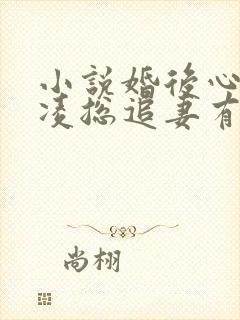 小說婚後心
凌总追妻有
尚栩